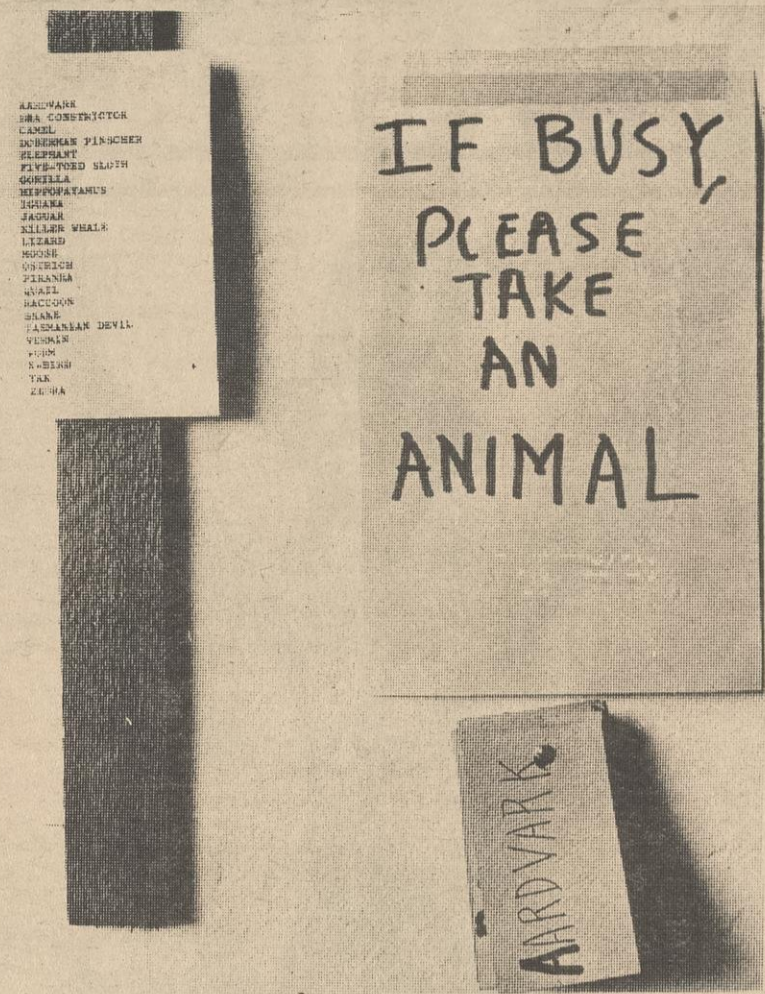 AARDVARK
BOA CONSTRICTOR
CAMEL
DOBERMAN PINSCHER
ELEPHANT
FIVE-TOED SLOTH
GORILLA
HIPPOPATAMUS
IGUANA
JAGUAR
KILLER WHALE
LIZARD
MOOSE
OSTRICH
PIRANHA
QUAIL
RACCOON
SNAKE
TASMANIAN DEVIL
VERMIN
WORM
X-BIRD
YAK
ZEBRA
IF BUSY,
PLEASE
TAKE
AN
ANIMAL
AARDVARK